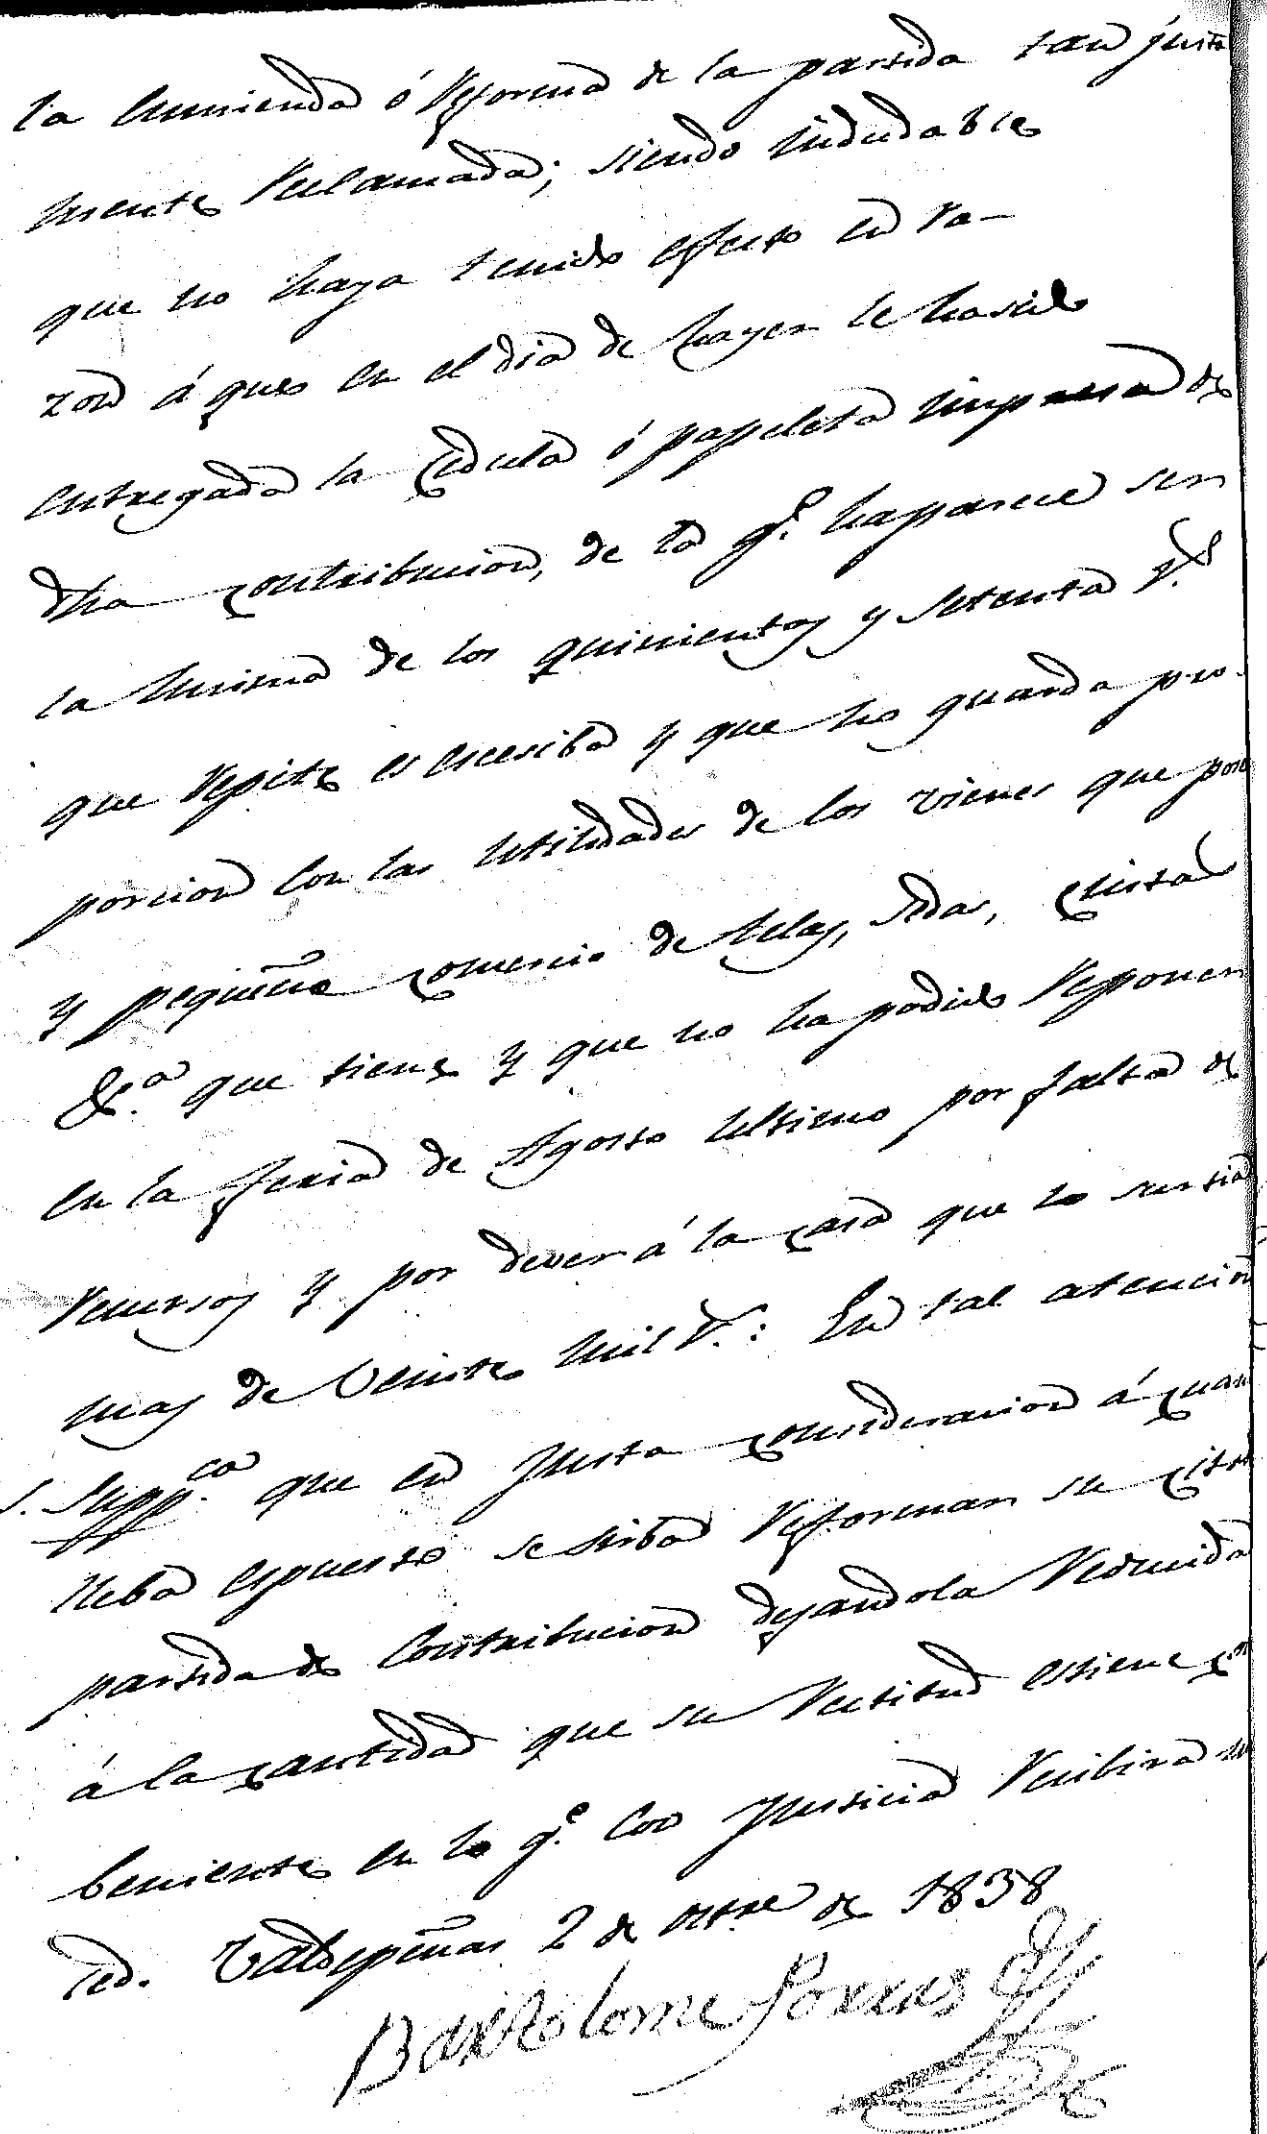 la enmienda ó reforma de la partida tan justa
mente reclamada; siendo indudable
que no haya tenido efecto en ra-
zon á que en el dia de hayer le ha sido
entregada la cedula ó pappeleta impresa de
dha contribucion, de la qe. happarece ser
la misma de los quinientos y setenta rs.
que repite es escesiba y que no guarda pro-
porcion con las utilidades de los vienes que pose
y pequeño comercio de telas, sedas, cintas
&a. que tiene y que no ha podido repponer
en la feria de Agosto ultimo por falta de
recursos y por dever á la casa que lo surtia
mas de veinte mil r.: En tal atencion
S. Suppca. que en justa consideracion á quan
lleba espuesto se sirba reformar su cita
partida de contribucion dejandola reducida
á la cantidad que su rectitud estime con
beniente en lo qe. con justicia recibira m
ced. Valdepeñas 2 de octre de 1838
Bartolome Porras